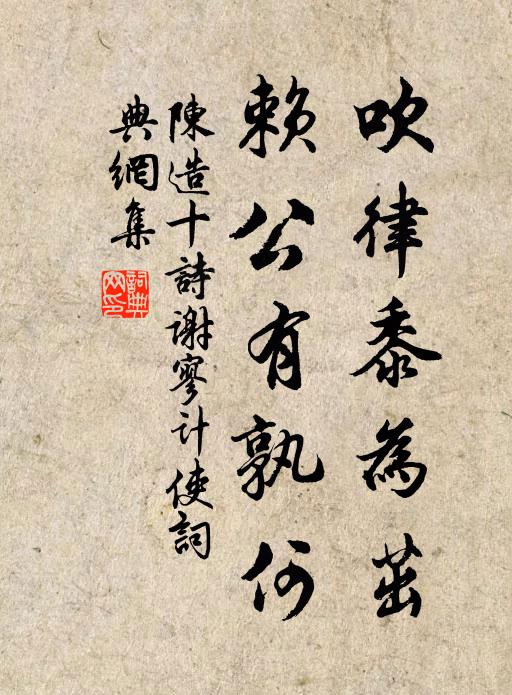 吹律黍為茁
賴公有孰何
陳造十詩謝寥計使詞
典網集
詞典网印